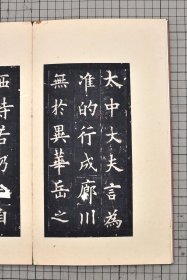 太中大夫言為
准的行成廊川
無於異華岳之
持若乃
自